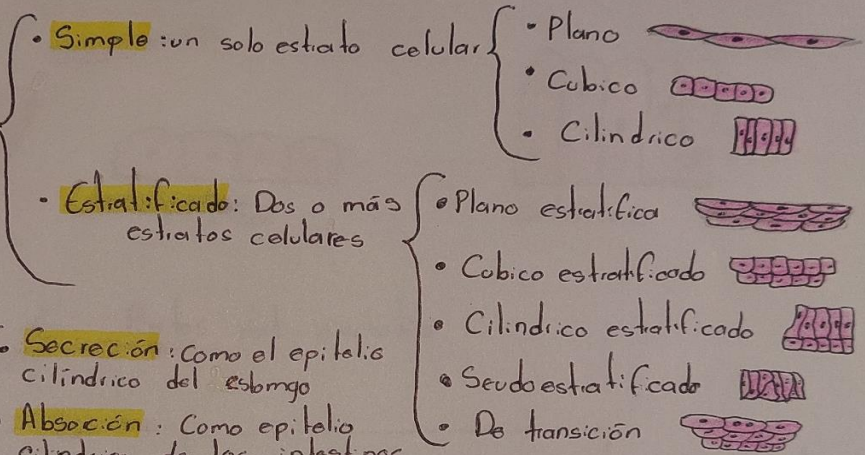 • Simple: un solo estrato celular
• Plano
• Cubico
• Cilindrico
• Estratificado: Dos o más
estratos celulares
• Plano estratifica
• Cubico estratificado
• Cilindrico estratificado
• Seudoestratificado
• De transición
• Secreción: Como el epitelio
cilíndrico del estomgo
• Absoción: Como epitelio